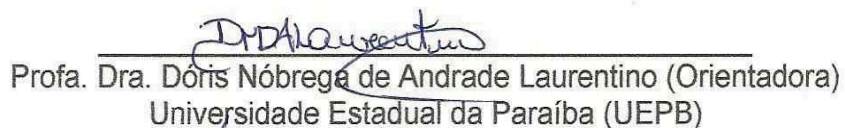 DNDALaurentino
Profa. Dra. Dóris Nóbrega de Andrade Laurentino (Orientadora)
Universidade Estadual da Paraíba (UEPB)